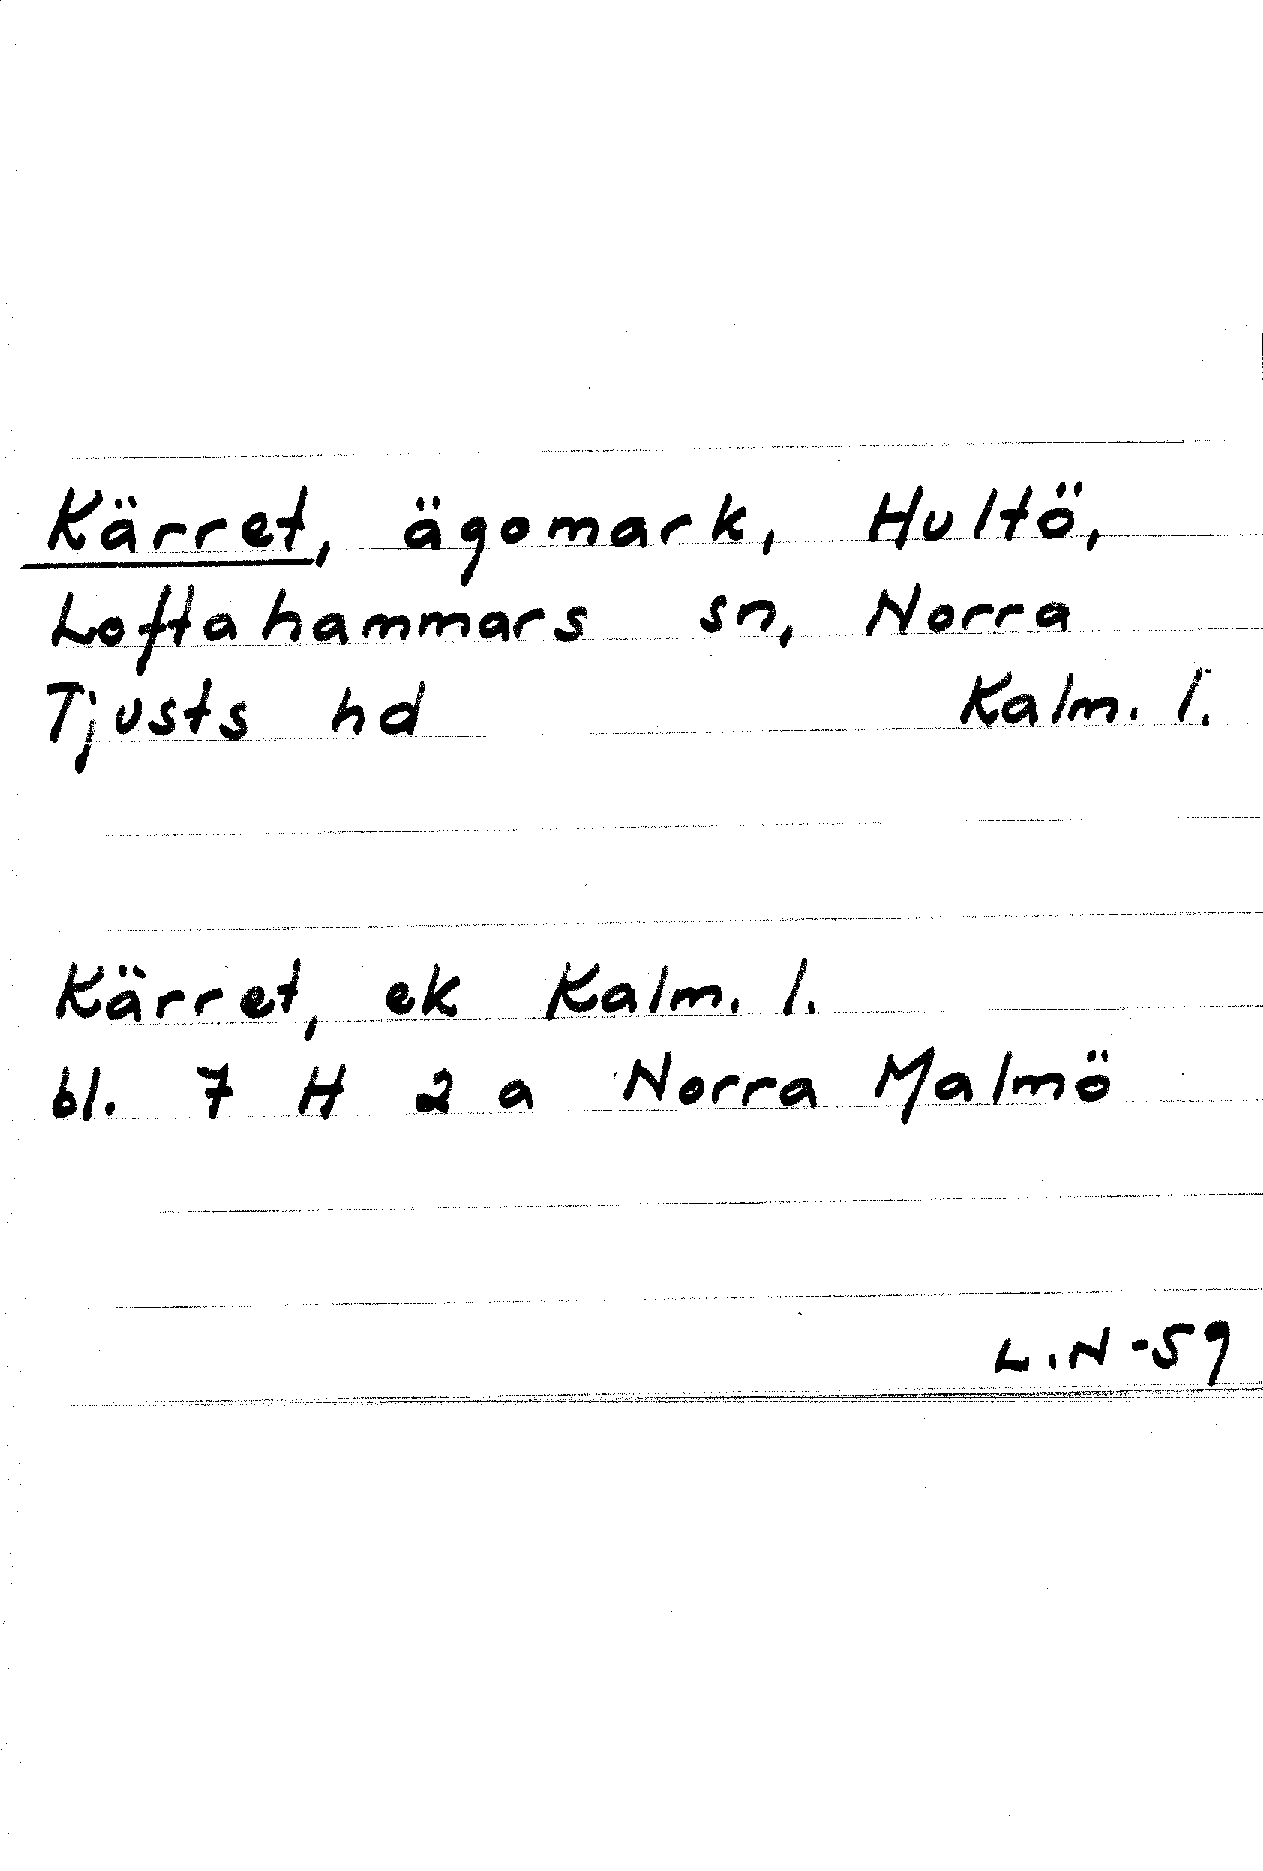 Kärret, ägomark, Hultö,
Loftahammars sn, Norra
Tjusts hd Kalm. l.
Kärret, ek Kalm. l.
bl. 7 H 2 a Norra Malmö
L.N -59